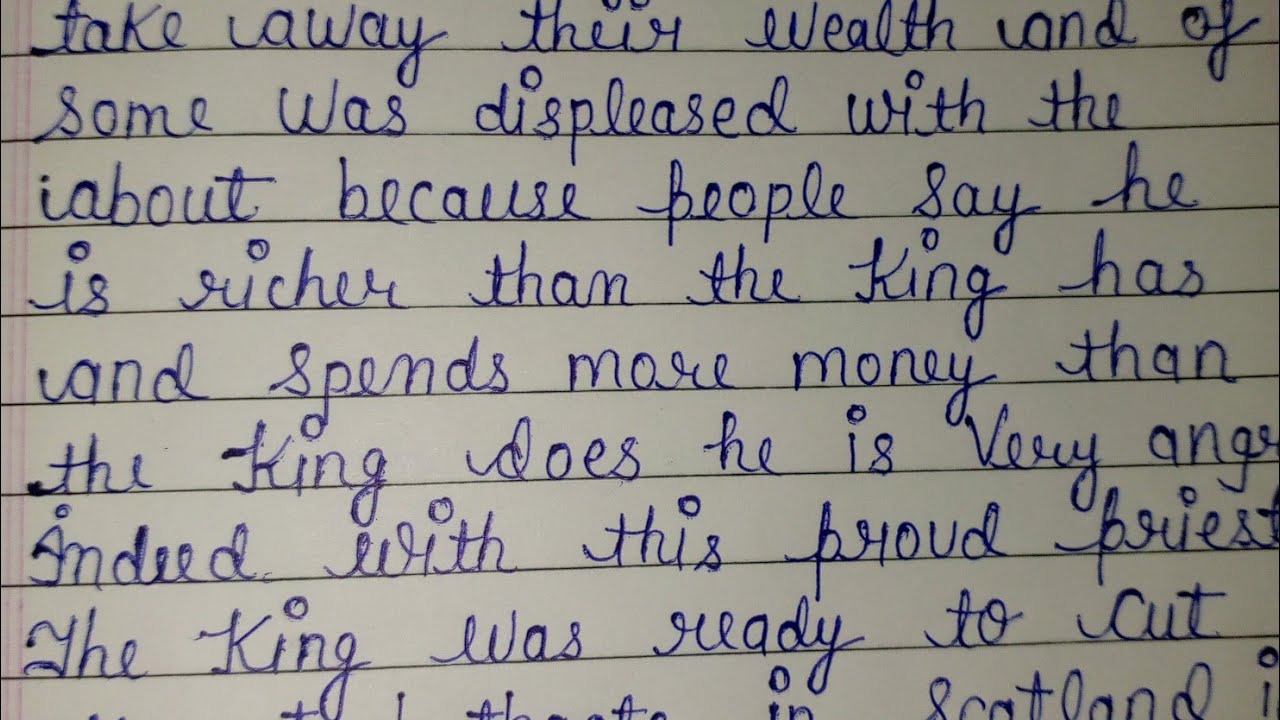 take away their wealth and of
some was displeased with the
about because people say he
is richer than the King has
and spends more money than
the King does he is Very angr
Indeed. with this proud priest
The King was ready to cut
in Scotland